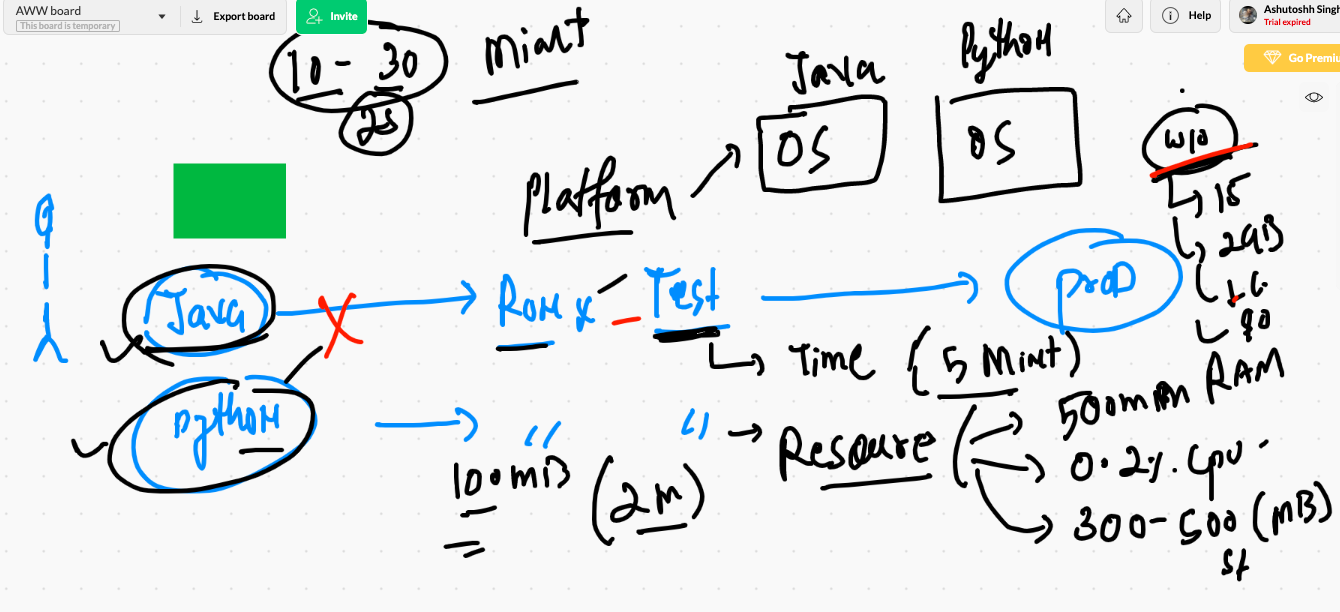 AWW board
This board is temporary
Export board
Invite
Help
Ashutoshh Singh
Trial expired
Go Premiu
10 - 30 Mint
2s
Java
Python
OS
OS
W10
Platform
15
2GB
Java
Run
Test
proD
90
Time (5 Mint)
Python
" "
Resource
RAM
0.2%. CPU
100MB (2M)
300-500 (MB)